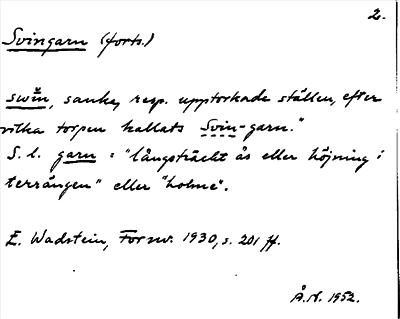 2.
Svingarn (forts.)
swīn, sanka, resp. upptorkade ställen, efter
vilka torpen kallats Svin-garn."
S. l. garn = "långsträckt ås eller höjning i
terrängen" eller "holme".
E. Wadstein, Fornv. 1930, s. 201 ff.
Å.N. 1952.